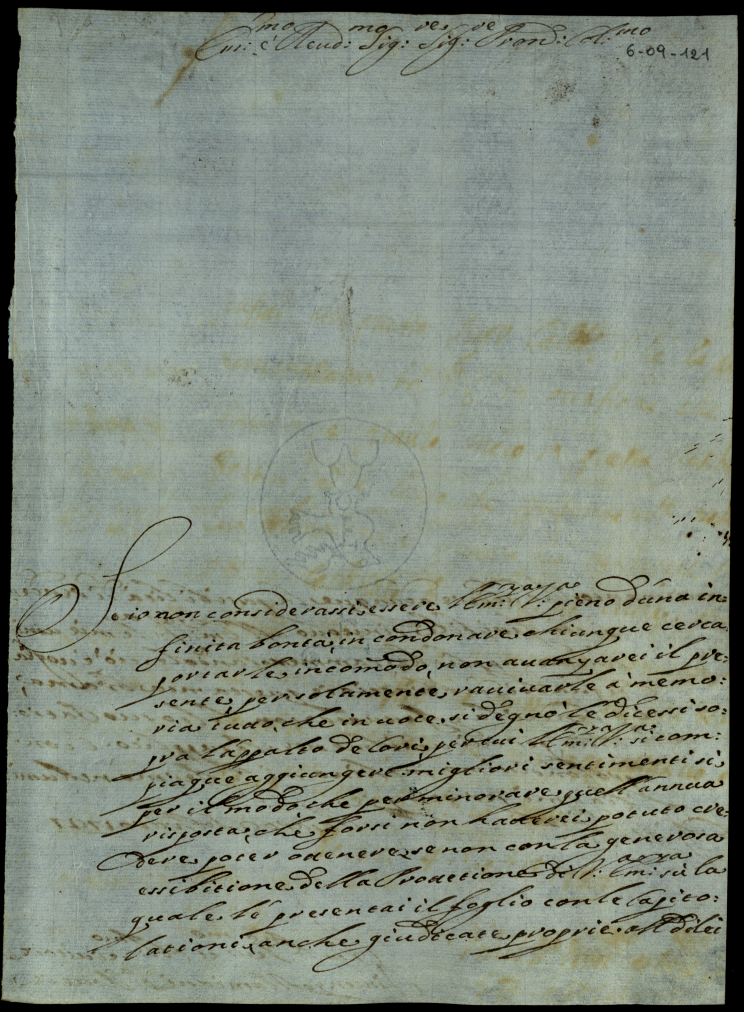 Em:mo e Reud:mo Sig:re Sig:re Pron: Col:mo
6-09-121
Se io non considerassi essere l'Em:za V:ra pieno d'una in=
finita bontà, in condonare chiunque cerca
portarle incomodo, non auanzarei il pre=
sente, per solamente rauiuarle à memo=
ria tutto che in uoce si degnò le dicessi so=
pra l'appalto de per cui l'Em:za V:ra si com=
piaque aggiungere migliori sentimenti si
per il modo che per minorare quell'annua
risposta, che forsi non hauerei potuto cre=
dere poter ottenere, se non con la generosa
essibitione della Protettione di V:ra Em:za si la
quale le presentai il foglio con le Capito=
lationi, anche giudicate proprie di lei